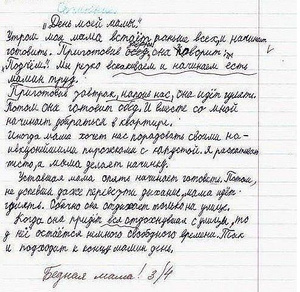 Сочинение.
„День моей мамы."
Утром моя мама встаёт раньше всех и начинает
готовить. Приготовив она говорит:
„Подъём". Мы резко вскакиваем и начинаем есть
мамин труд.
Приготовив завтрак, она идёт гулять.
Потом она готовит обед. И вместе со мной
начинает убираться в квартире.
Иногда мама хочет нас порадовать своими на-
ивкуснейшими пирожками с капустой. Я раскатываю
тесто, а мама делает начинку.
Уставшая мама опять начинает готовить. Потом,
не успевши даже перевести дыхание, мама идёт
гулять. Обычно она отдыхает только на улице.
Когда она придёт вся с улицы, то
у неё остаётся немного свободного времени. Так
и подходит к концу мамин день.
Бедная мама! 3/4